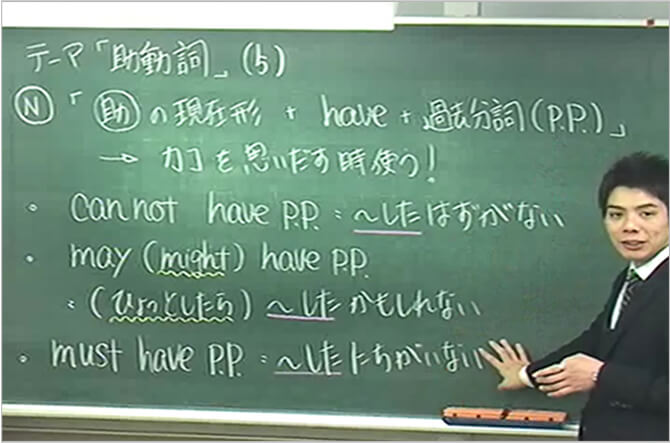 テーマ「助動詞」(5)
Ⓝ「助の現在形 + have + 過去分詞(P.P.)」
→ カコを思いだす時使う!
・ cannot have P.P. : 〜したはずがない
・ may (might) have P.P.
: (ひょっとしたら) 〜したかもしれない
・ must have P.P. : 〜したにちがいない